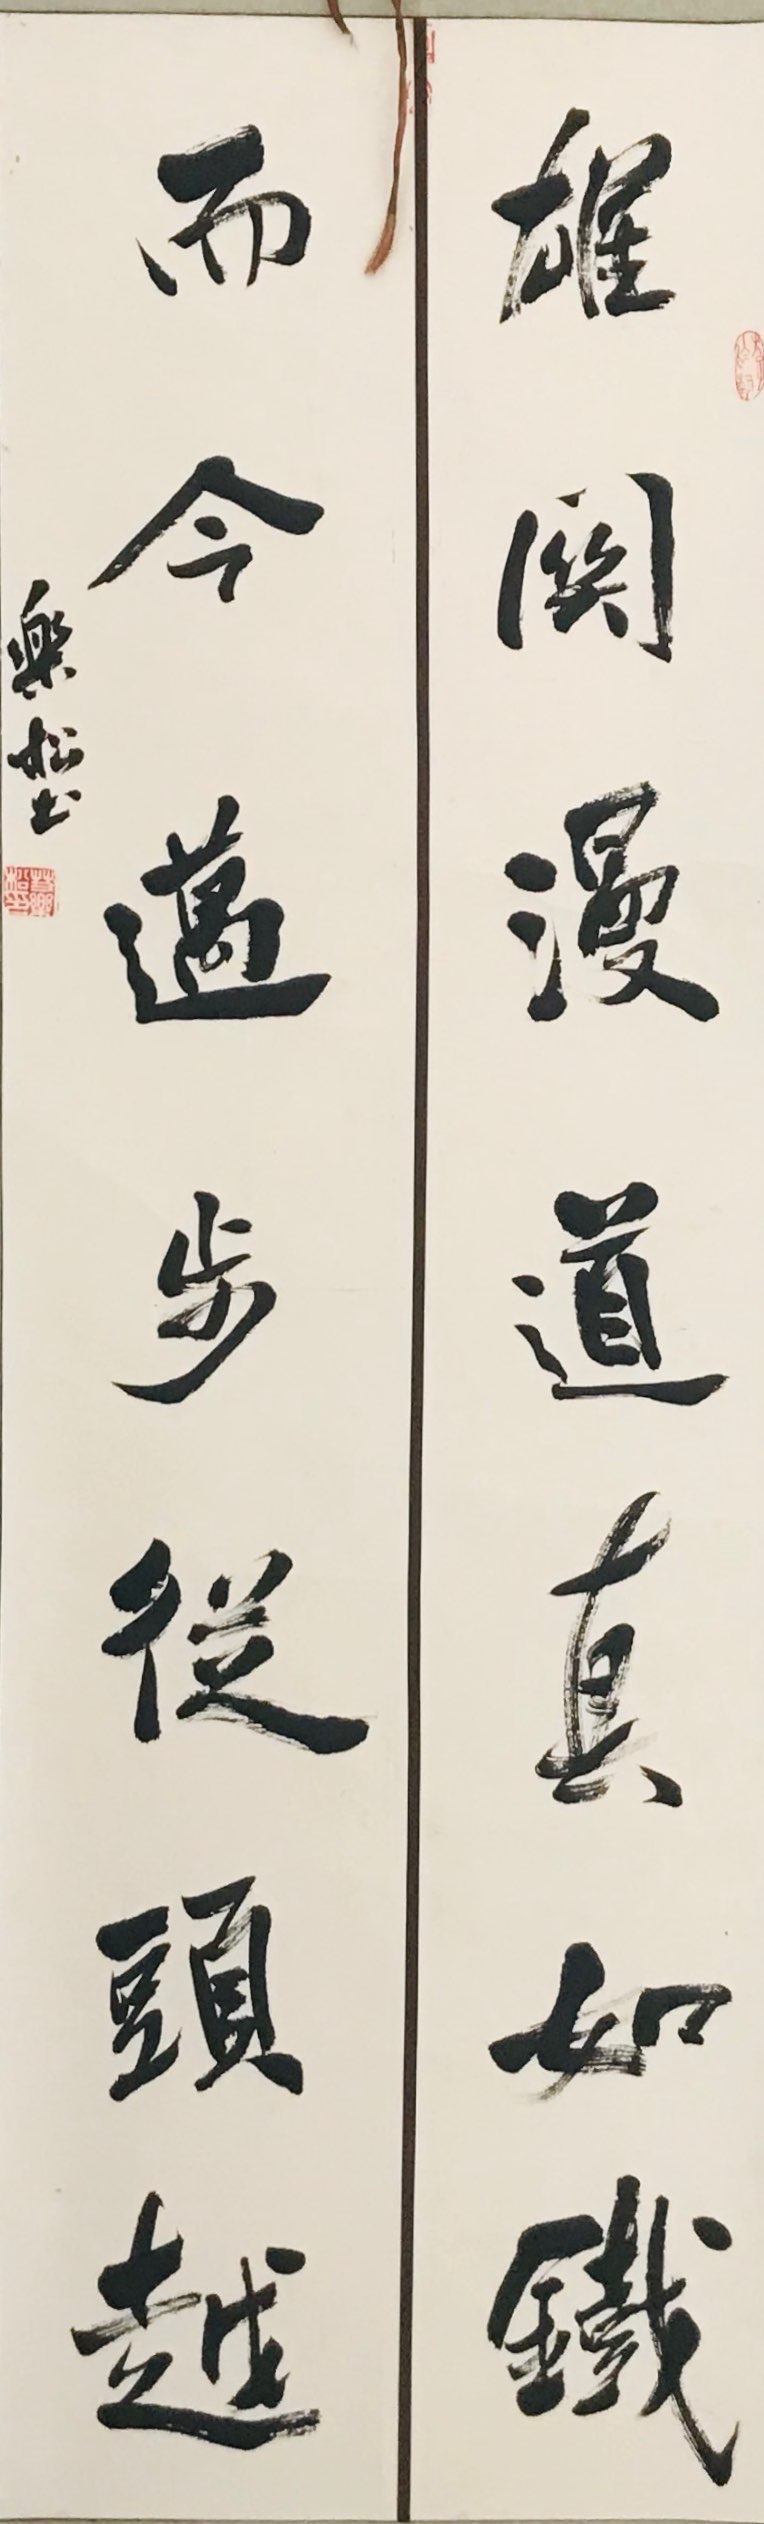 雄関漫道真如鐵
而今邁步從頭越
樂松书